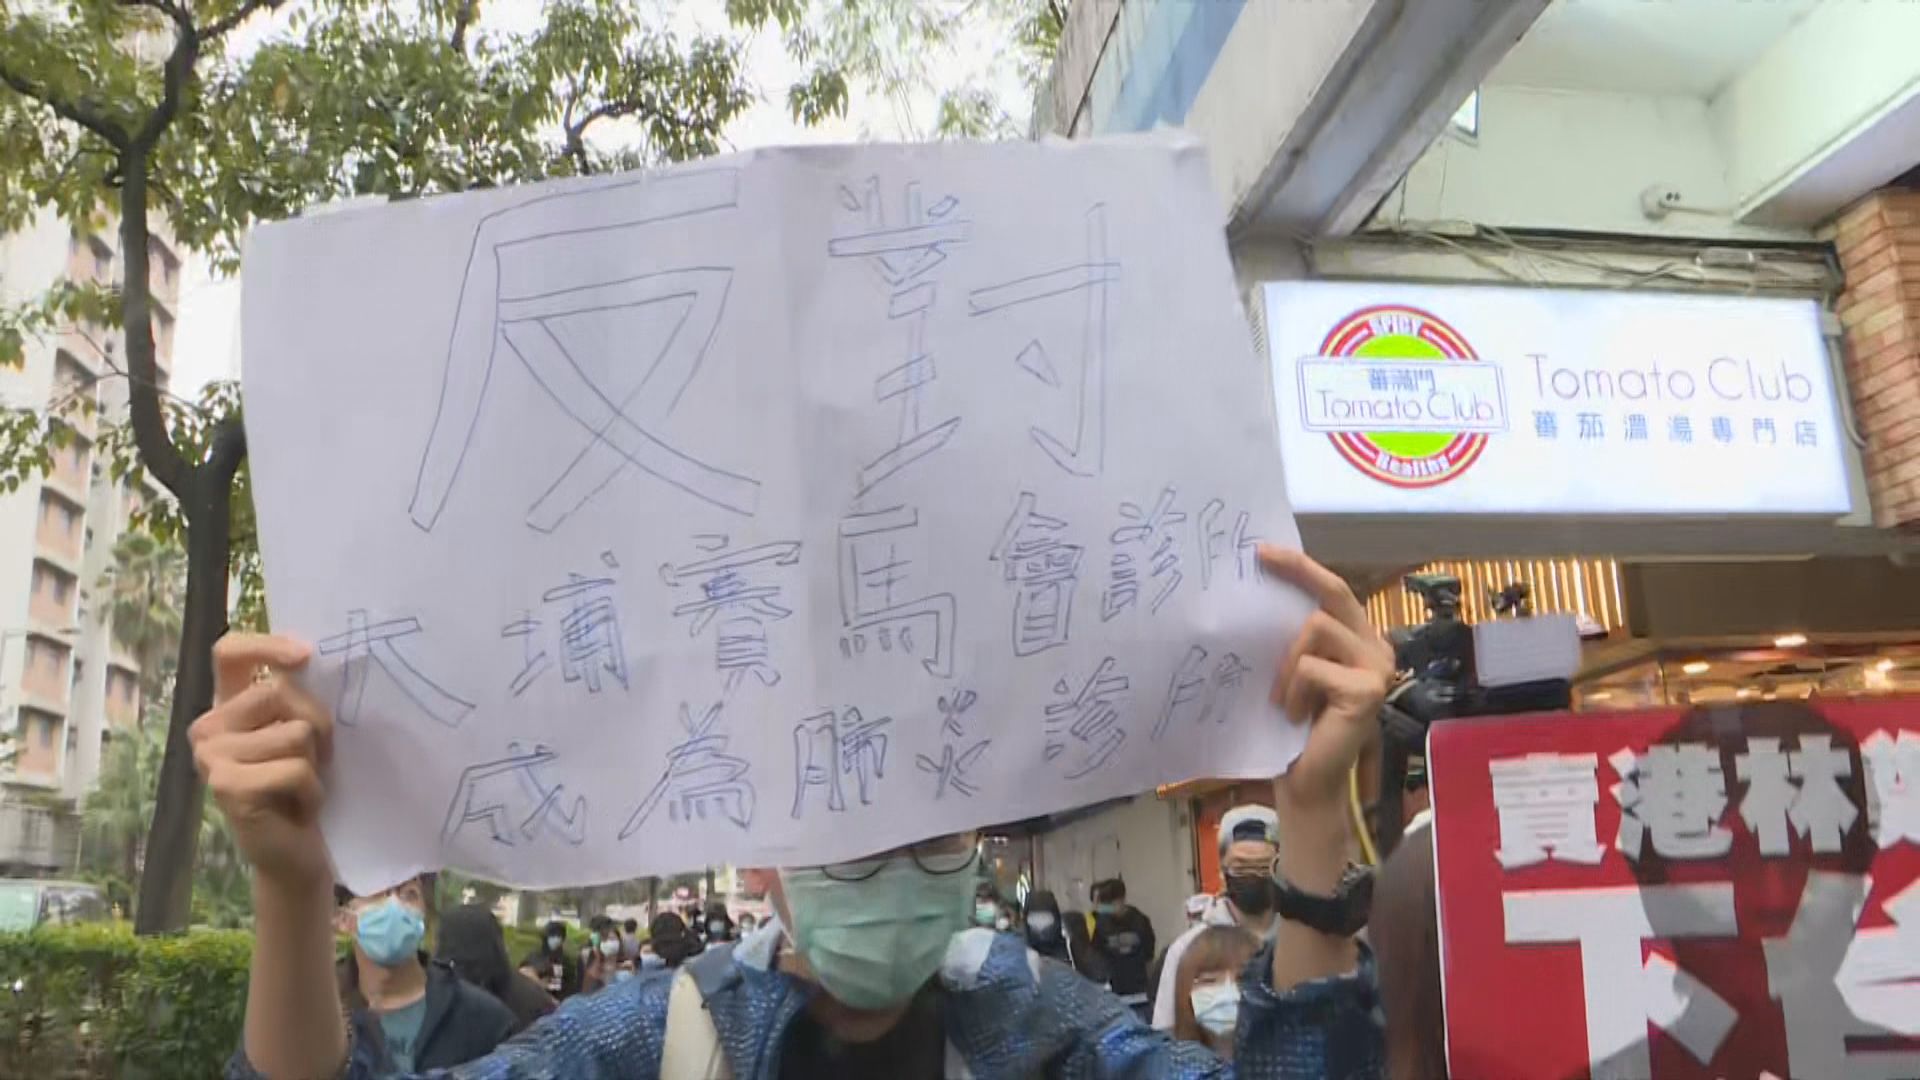 反對
大埔賽馬會診所
成為肺炎診所
SPICY
蕃滿門
Tomato Club
Healthy
Tomato Club
蕃茄濃湯專門店
賣港林
下